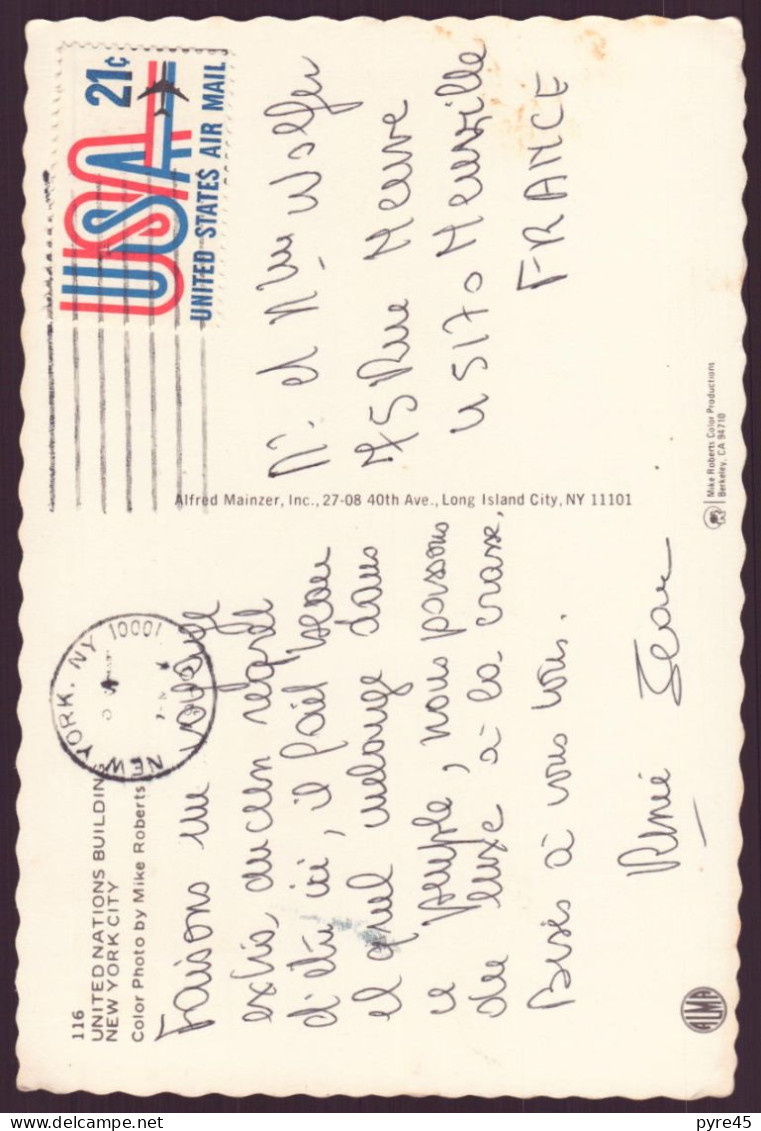 116
UNITED NATIONS BUILDING
NEW YORK CITY
Color Photo by Mike Roberts
NEW YORK, NY 10001
Faisons un voyage
extra, aucun regret
d'être ici, il fait beau
et quel mélange dans
ce peuple, nous passons
du luxe à la crasse.
Bises à vous tous.
Renée Jean
ALMA
Alfred Mainzer, Inc., 27-08 40th Ave., Long Island City, NY 11101
USA 21c
UNITED STATES AIR MAIL
M. et Mme Wolfer
75 Rue Neuve
45170 Neuville
FRANCE
Mike Roberts Color Productions
Berkeley, CA 94710
pyre45